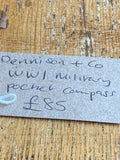 Dennison + Co
WW1 Military
pocket compass
£85